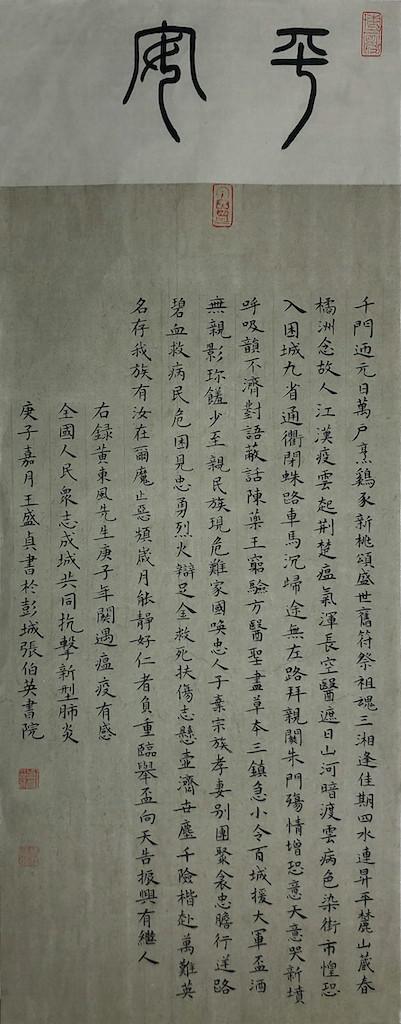 平安
千門迊元日萬户烹鷄豕新桃頌盛世舊符祭祖魂三湘逢佳期四水連昇平麓山蔵春
橘洲念故人江漢疫雲起荆楚瘟氣渾長空醫遮日山河暗渡雲病色染街市惶恐
入困城九省通衢閉蛛路車馬沉歸途無左路拜親闕朱門殤情增恐意天意哭新墳
呼吸韻不濟對語蔽話陳藥王窮驗方醫聖盡草本三鎮急小令百城援大軍盃酒
無親影珎饈少至親民族現危難家國喚忠人子棄宗族孝妻别團聚衾忠膽行逆路
碧血救病民危困見忠勇烈火辯足金救死扶傷志懸壷濟世塵千險楷赴萬難英
名存我族有汝在爾魔止惡煩歲月能静好仁者負重臨舉盃向天告振興有繼人
右録黄東風先生庚子年關遇瘟疫有感
全國人民衆志成城共同抗擊新型肺炎
庚子嘉月王盛貞書於彭城張伯英書院